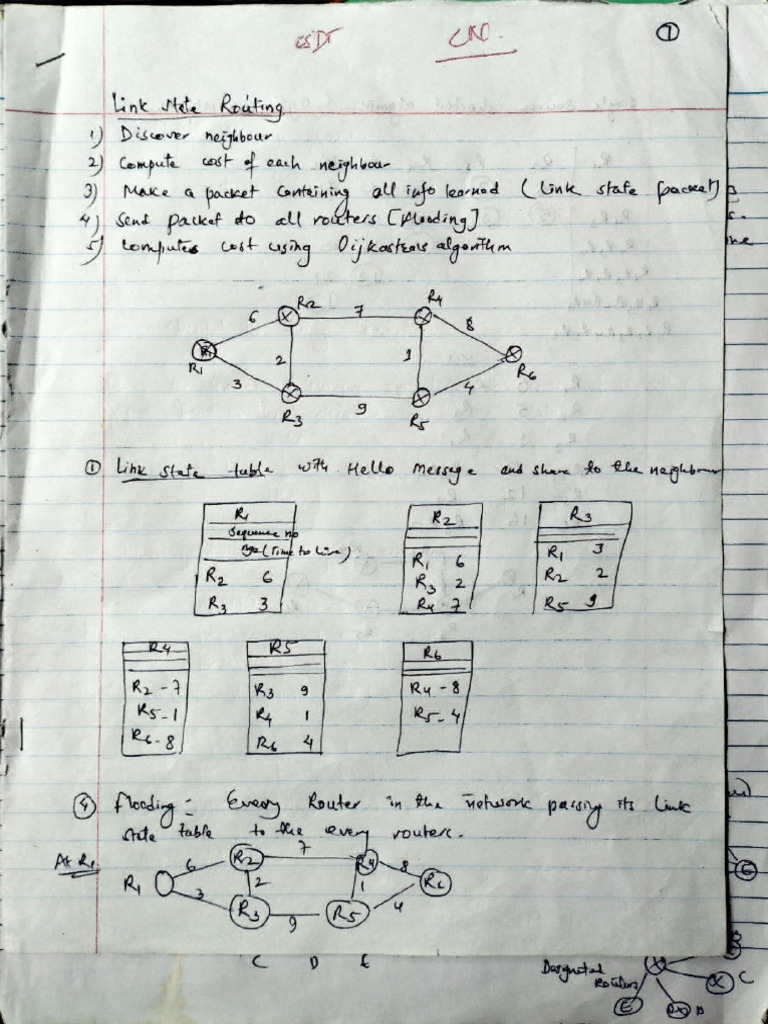 CSDT
CND.
1
Link state Routing
1) Discover neighbour
2) Compute cost of each neighbour
3) Make a packet containing all info learned (Link state packet)
4) Send packet to all routers [flooding]
5) Computes cost using Dijkasterals algorithm
R2
R4
6
7
8
R1
2
1
R6
3
9
4
R3
R5
① Link state table with Hello Message and share to the neighbour
R1
Sequence no
Age (Time to Live)
R2 6
R3 3
R2
R1 6
R3 2
R4 7
R3
R1 3
R2 2
R5 9
R4
R2 - 7
R5 - 1
R6 - 8
R5
R3 9
R4 1
R6 4
R6
R4 - 8
R5 - 4
④ Flooding:- Every Router in the network passing its Link
state table to the every routers.
At R1
R1
6
R2
7
R4
8
R6
3
2
1
4
R3
9
R5
C D E
Designated
Routers
C
E
D
E